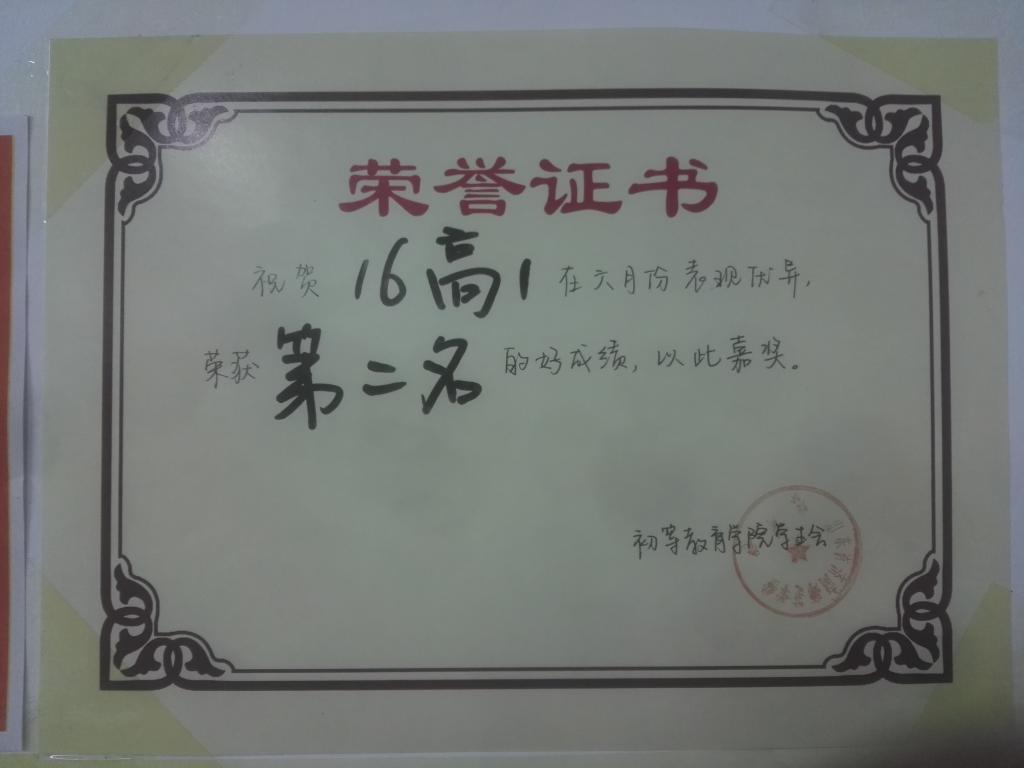 荣誉证书
祝贺 16高1 在六月份表现优异,
荣获 第二名 的好成绩,以此嘉奖。
初等教育学院学生会